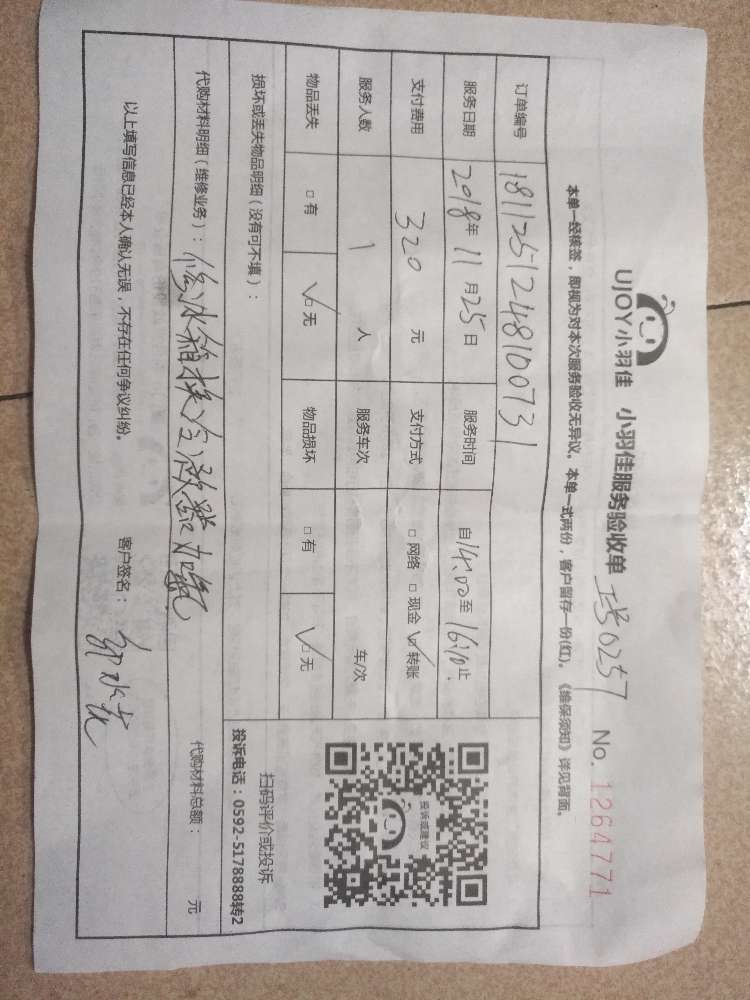 UJOY小羽佳 小羽佳服务验收单 工号0257 No. 1264771
本单一经核签，即视为对本次服务验收无异议。本单一式两份，客户留存一份(红)。《维保须知》详见背面。
订单编号 181125124810073
服务日期 2018年11月25日 服务时间 自14:00至16:10止
支付费用 320元 支付方式 □网络 □现金 ☑转账
服务人数 1人 服务车次 车/次
物品丢失 □有 ☑无 物品损坏 □有 ☑无
损坏或丢失物品明细（没有可不填）：
投诉或建议
扫码评价或投诉
投诉电话：0592-5178888转2
代购材料明细（维修业务）：修冰箱换 加氟 代购材料总额： 元
以上填写信息已经本人确认无误，不存在任何争议纠纷。 客户签名：